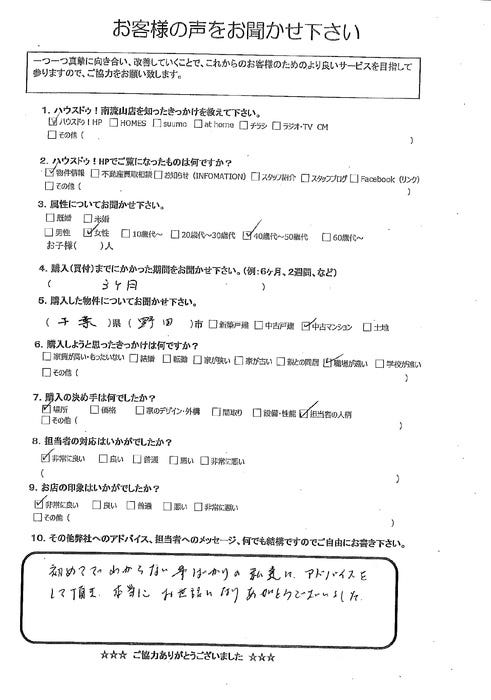 お客様の声をお聞かせ下さい
一つ一つ真摯に向き合い、改善していくことで、これからのお客様のためのより良いサービスを目指して
参りますので、ご協力をお願い致します。
1. ハウスドゥ！南流山店を知ったきっかけを教えて下さい。
☑ハウスドゥ！HP □HOMES □suumo □at home □チラシ □ラジオ・TV CM
□その他（ ）
2. ハウスドゥ！HPでご覧になったものは何ですか？
☑物件情報 □不動産買取相談 □お知らせ（INFOMATION） □スタッフ紹介 □スタッフブログ □Facebook（リンク）
□その他（ ）
3. 属性についてお聞かせ下さい。
□既婚 □未婚
□男性 ☑女性 □10歳代～ □20歳代～30歳代 ☑40歳代～50歳代 □60歳代～
お子様（ ）人
4. 購入（買付）までにかかった期間をお聞かせ下さい。（例：6ヶ月、2週間、など）
（ 3ヶ月 ）
5. 購入した物件についてお聞かせ下さい。
（千葉）県（野田）市 □新築戸建 □中古戸建 ☑中古マンション □土地
6. 購入しようと思ったきっかけは何ですか？
□家賃が高い・もったいない □結婚 □転勤 □家が狭い □家が古い □親との同居 ☑職場が遠い □学校が遠い
□その他（ ）
7. 購入の決め手は何でしたか？
☑場所 □価格 □家のデザイン・外構 □間取り □設備・性能 ☑担当者の人柄
□その他（ ）
8. 担当者の対応はいかがでしたか？
☑非常に良い □良い □普通 □悪い □非常に悪い
（ ）
9. お店の印象はいかがでしたか？
☑非常に良い □良い □普通 □悪い □非常に悪い
□その他（ ）
10. その他弊社へのアドバイス、担当者へのメッセージ、何でも結構ですのでご自由にお書き下さい。
初めてでわからない事ばかりの私達に、アドバイスを
して頂き、本当にお世話になりありがとうございました。
☆☆☆ ご協力ありがとうございました ☆☆☆